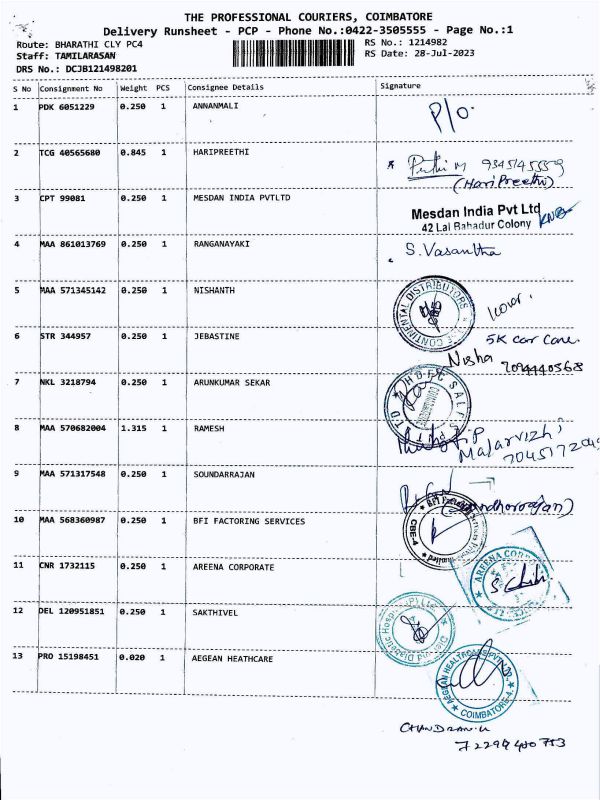 THE PROFESSIONAL COURIERS, COIMBATORE
Delivery Runsheet - PCP - Phone No.:0422-3505555 - Page No.:1
Route: BHARATHI CLY PC4
RS No.: 1214982
Staff: TAMILARASAN
RS Date: 28-Jul-2023
DRS No.: DCJB121498201
S No Consignment No Weight PCS Consignee Details Signature
1 PDK 6051229 0.250 1 ANNANMALI P/O.
2 TCG 40565680 0.845 1 HARIPREETHI
(HariPreethi)
3 CPT 99081 0.250 1 MESDAN INDIA PVTLTD
Mesdan India Pvt Ltd
42 Lal Bahadur Colony
4 MAA 861013769 0.250 1 RANGANAYAKI S. Vasantha
5 MAA 571345142 0.250 1 NISHANTH
CONTINENTAL DISTRIBUTORS
1 cover.
6 STR 344957 0.250 1 JEBASTINE 5K Car Care.
Nisha
7094440568
7 NKL 3218794 0.250 1 ARUNKUMAR SEKAR
HDFC SALES PVT LTD
8 MAA 570682004 1.315 1 RAMESH
Malarvizhi
9 MAA 571317548 0.250 1 SOUNDARRAJAN
10 MAA 568360987 0.250 1 BFI FACTORING SERVICES
CBE-4
11 CNR 1732115 0.250 1 AREENA CORPORATE
AREENA
12 DEL 120951851 0.250 1 SAKTHIVEL
13 PRO 15198451 0.020 1 AEGEAN HEATHCARE
AEGEAN HEALTHCARE PVT.LTD.
COIMBATORE-4.
CHANDRAN.U